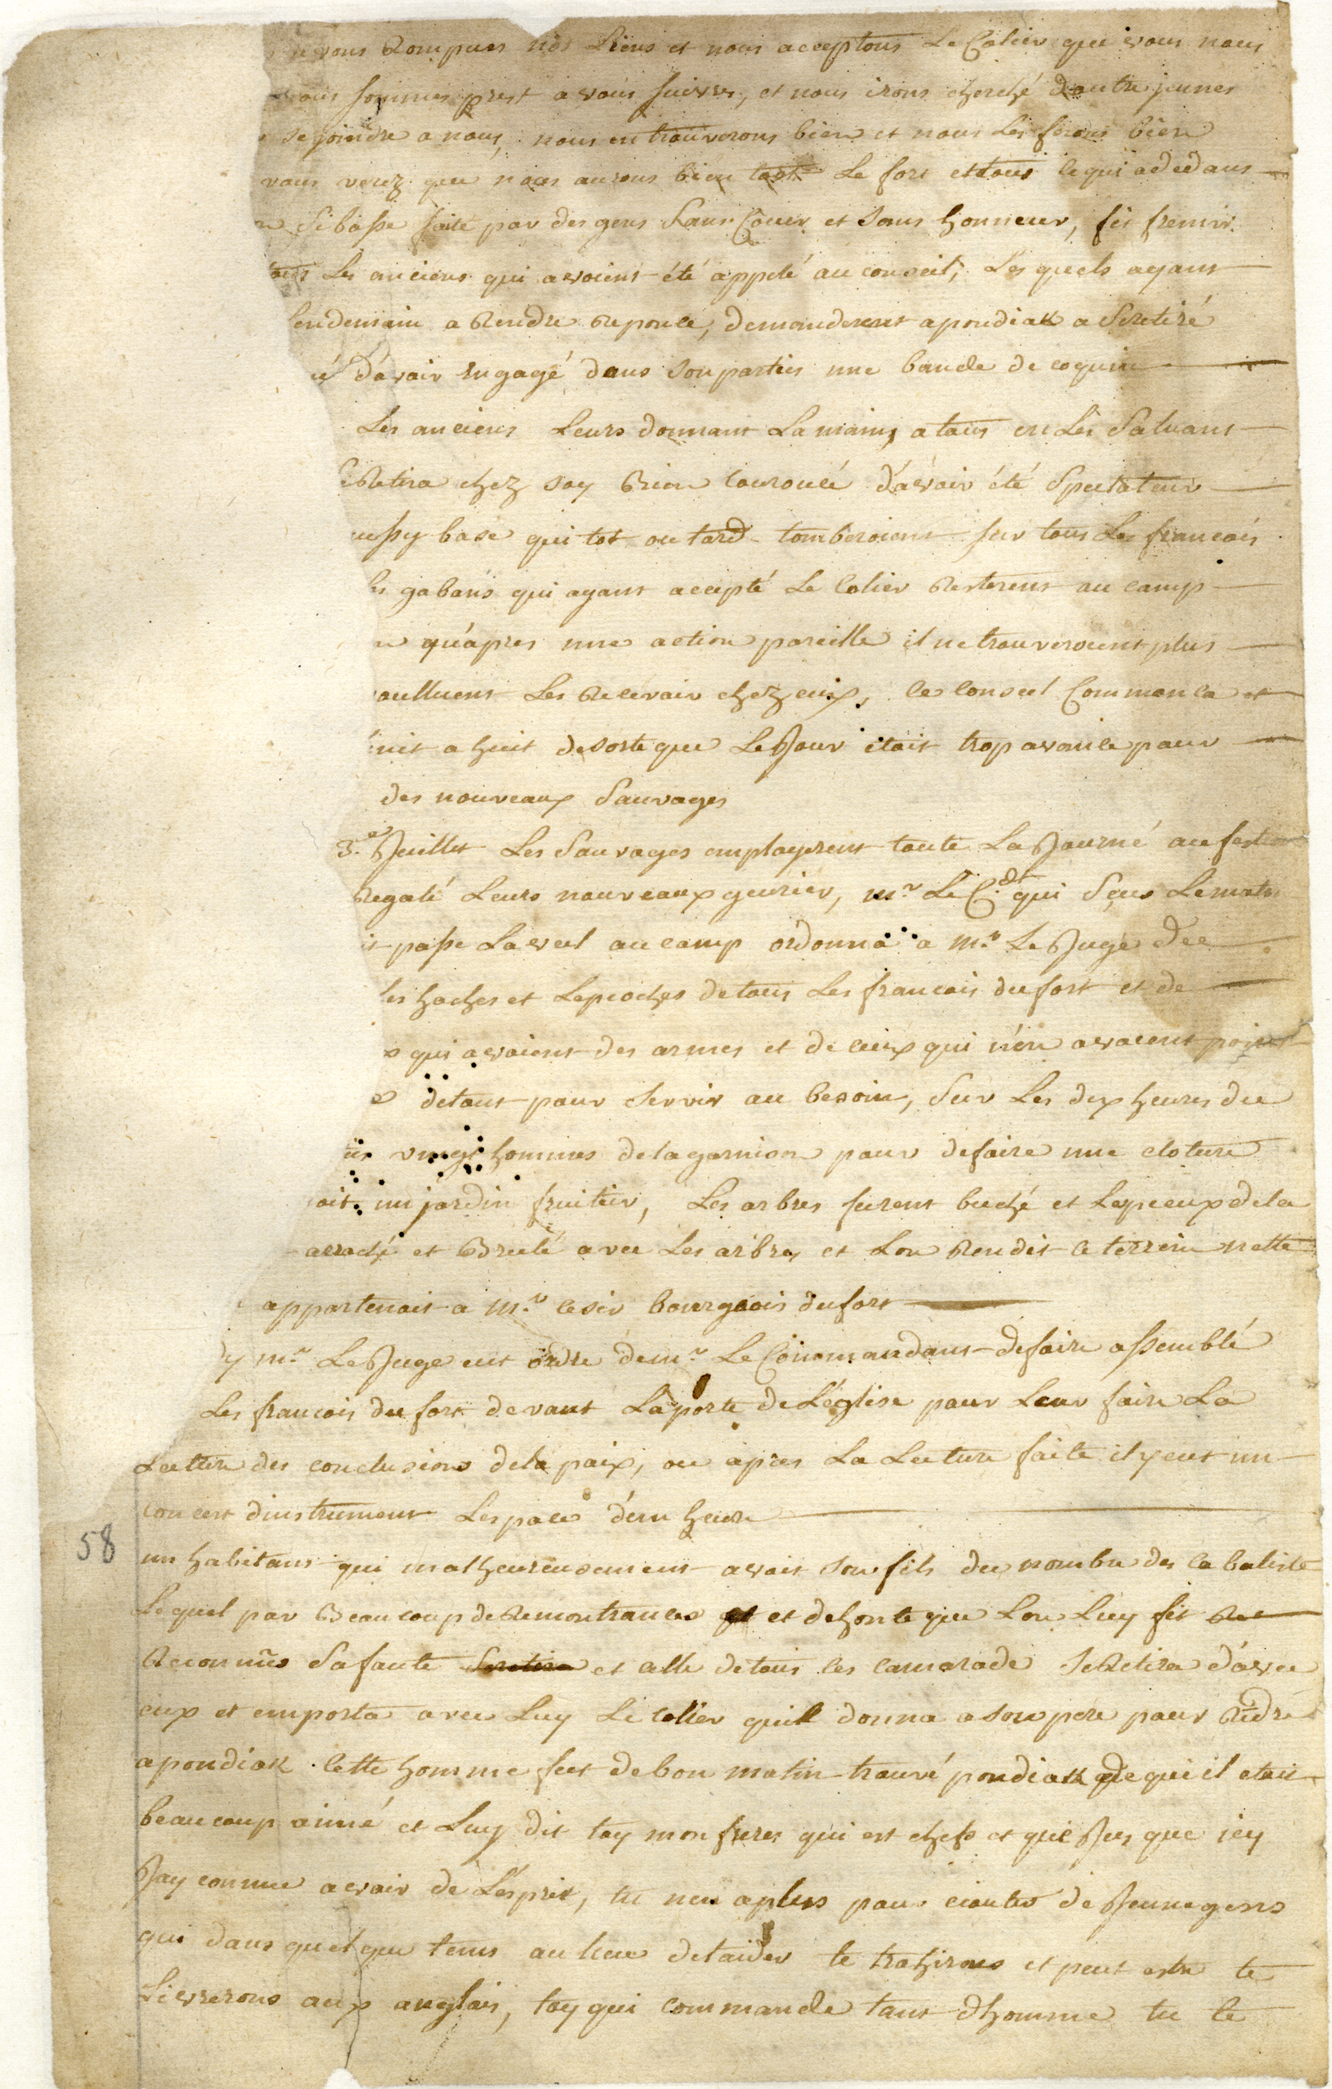 vous Rompues nos Liens et nous acceptons Le Colier que vous nous
sommes prest a vous suivre, et nous irons cherché dautre jeunes
se joindre a nous, nous en trouverons bien et nous Les ferons bien
vous verez que nous aurons bien tost Le fort et tous ce qui a dedans
Si basse faite par des gens Sans Coeur et sans honneur, fit fremir
tous Les anciens qui avoient été appelé au conseil, Les quels ayant
lendemain a Rendre Reponce, demanderent a pondiak a Se retiré
d'avoir Engagé dans son partis une bande de coquin
Les anciens Leurs donnant La main a tous en Les Saluant
Retira chez soy Bien Couroucé d'avoir été Spectateur
aussy base qui tot ou tard tomberoient sur tous Les francois
gabans qui ayant accepté Le Colier Resterent au camp
qu'apres une action pareille il ne trouveroient plus
voulluent Les Recevoir chez eux, ce Conseil Commenca et
finit a huit de sorte que Le Jour etoit trop avancé pour
des nouveaux Sauvages
3.e Juillet Les Sauvages employerent toute La Journé au festin
Regalé Leurs nouveaux geurier, Mr Le C.dt qui Sçus Le matin
passe La veul au camp ordonna a Mr. Le Juge de
les haches et Les pioches de tous Les francois du fort et de
qui avoient des armes et de ceux qui n'en avoient point
detout pour servir au besoin, Sur Les dix heures du
vingt hommes de la garnison pour defaire une cloture
un jardin fruitier, Les arbres furent buché et Les pieux de la
arraché et Brulé avec Les arbres et Lon Rendit ce terrein nette
appartenoit a Mr. cesir bourgeois du fort
Mr. Le Juge eut ordre de Mr. Le Commandant de faire assemblé
Les francois du fort devant La porte de L'eglise pour Leur faire La
Lecture des conclusions de la paix, ou apres La Lecture faite il y eut un
concert dinstrument Lespace d'un heure
58
un habitant qui malheureusement avoit son fils du nombre des cabaliste
Lequel par Beaucoup de Remontrances et de honte que Lon Luy fit
Reconnus Sa faute et celle de tous ces camarade se Retira d'avec
eux et emporta avec Luy Le collier quil donna a son pere pour Rendre
a pondiak Cette homme fut de bon matin trouvé pondiak de qui il etoit
beaucoup aimé et Luy dit toy mon freres qui est chefs et que Jus que icy
Jay connue avoir de L'esprit, tu nen a plus pour ecouter de Jeune gens
qui dans quelque tems au lieu detaider te trahirons et peut estre te
Livrerons aux anglais, toy qui commande tant dhomme tu te